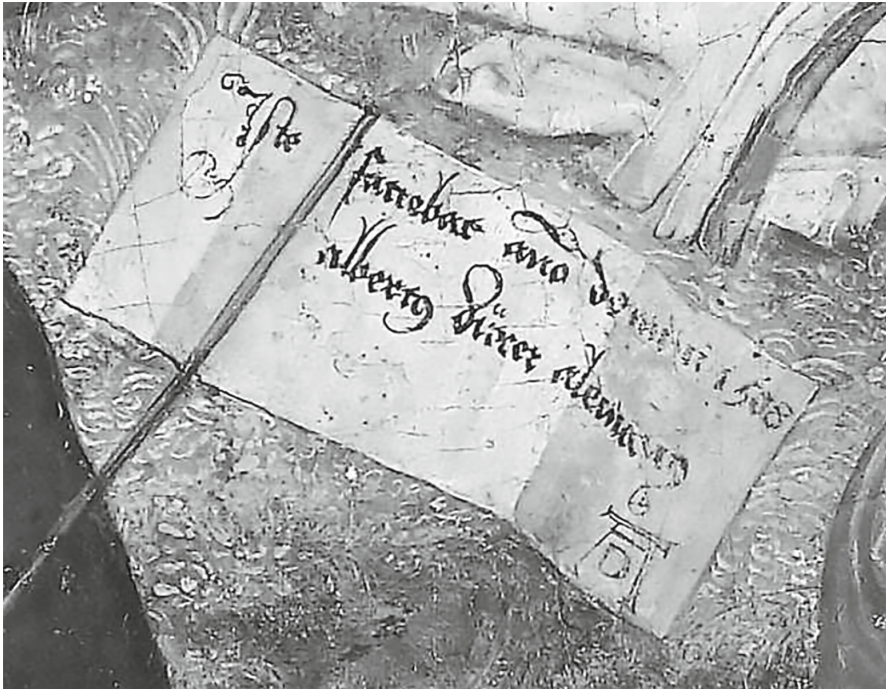 Iste faciebat ano domini 1508
albertꝰ Dürer alemanꝰ
AD